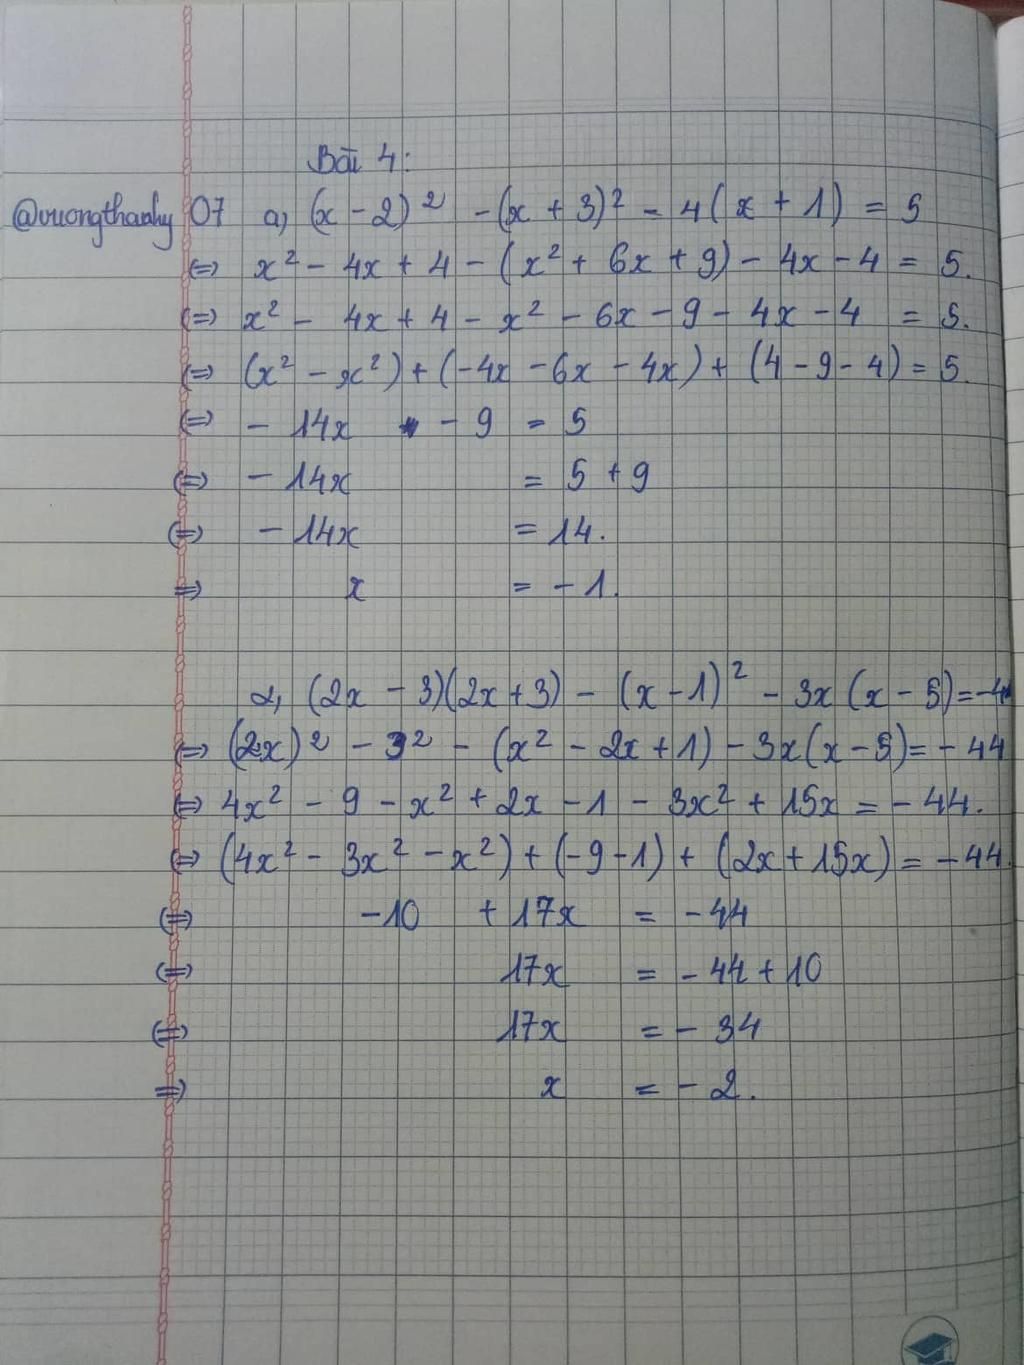 Bài 4:
@vuongthaohy 07 a, (x - 2)² - (x + 3)² - 4(x + 1) = 5
(=) x² - 4x + 4 - (x² + 6x + 9) - 4x - 4 = 5.
(=) x² - 4x + 4 - x² - 6x - 9 - 4x - 4 = 5.
(=) (x² - x²) + (-4x - 6x - 4x) + (4 - 9 - 4) = 5.
(=) - 14x - 9 = 5
(=) - 14x = 5 + 9
(=) - 14x = 14.
=) x = - 1.
2, (2x - 3)(2x + 3) - (x - 1)² - 3x (x - 5) = -44
(=) (2x)² - 3² - (x² - 2x + 1) - 3x(x - 5) = - 44
(=) 4x² - 9 - x² + 2x - 1 - 3x² + 15x = - 44.
(=) (4x² - 3x² - x²) + (-9 - 1) + (2x + 15x) = - 44.
(=) -10 + 17x = - 44
(=) 17x = - 44 + 10
(=) 17x = - 34
=) x = - 2.